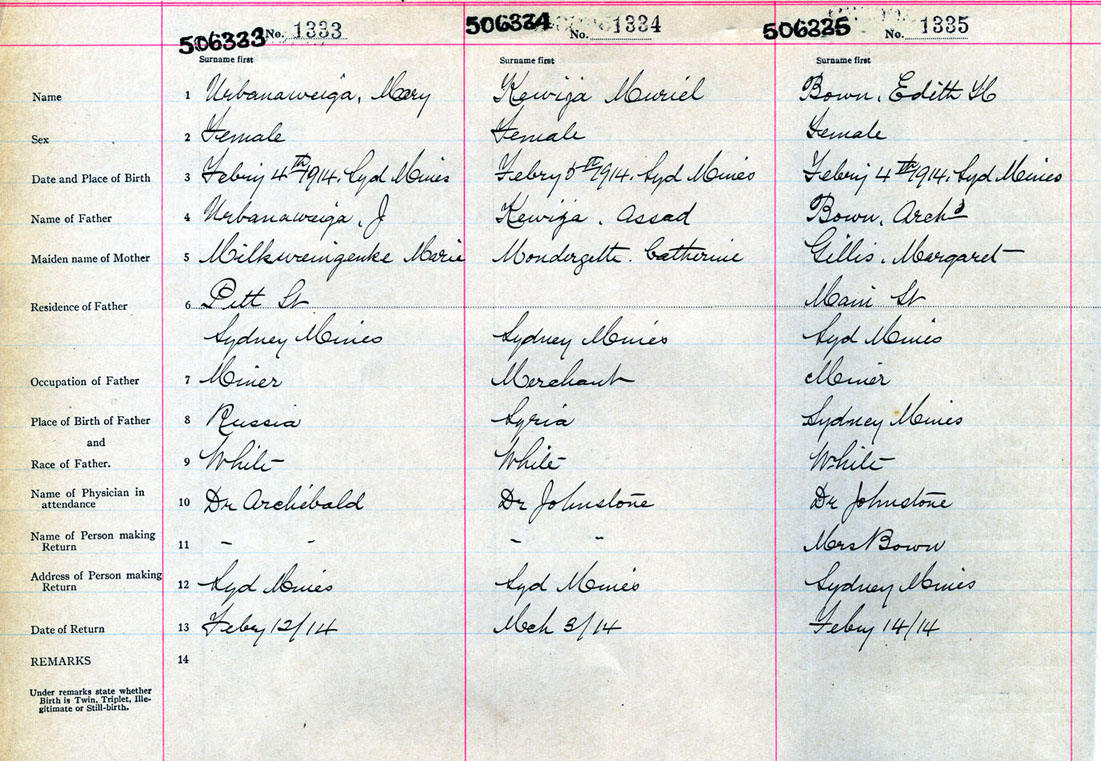 506333 No. 1333 506334 No. 1334 506335 No. 1335
Surname first Surname first Surname first
Name 1 Urbanaweiga, Mary Kewija Muriel Bown, Edith H
Sex 2 Female Female Female
Date and Place of Birth 3 Febry 4th 1914. Syd Mines Febry 5th 1914. Syd Mines Febry 4th 1914. Syd Mines
Name of Father 4 Urbanaweiga, J Kewija. Assad Bown, Archd
Maiden name of Mother 5 Milkweingenke Marie Mondergette. Catherine Gillis, Margaret
Residence of Father 6 Pitt St Main St
Sydney Mines Sydney Mines Syd Mines
Occupation of Father 7 Miner Merchant Miner
Place of Birth of Father 8 Russia Syria Sydney Mines
and
Race of Father. 9 White White White
Name of Physician in
attendance 10 Dr Archibald Dr Johnstone Dr Johnstone
Name of Person making
Return 11 - - - " Mrs Bown
Address of Person making
Return 12 Syd Mines Syd Mines Sydney Mines
Date of Return 13 Febry 12/14 Mch 3/14 Febry 14/14
REMARKS 14
Under remarks state whether
Birth is Twin, Triplet, Ille-
gitimate or Still-birth.